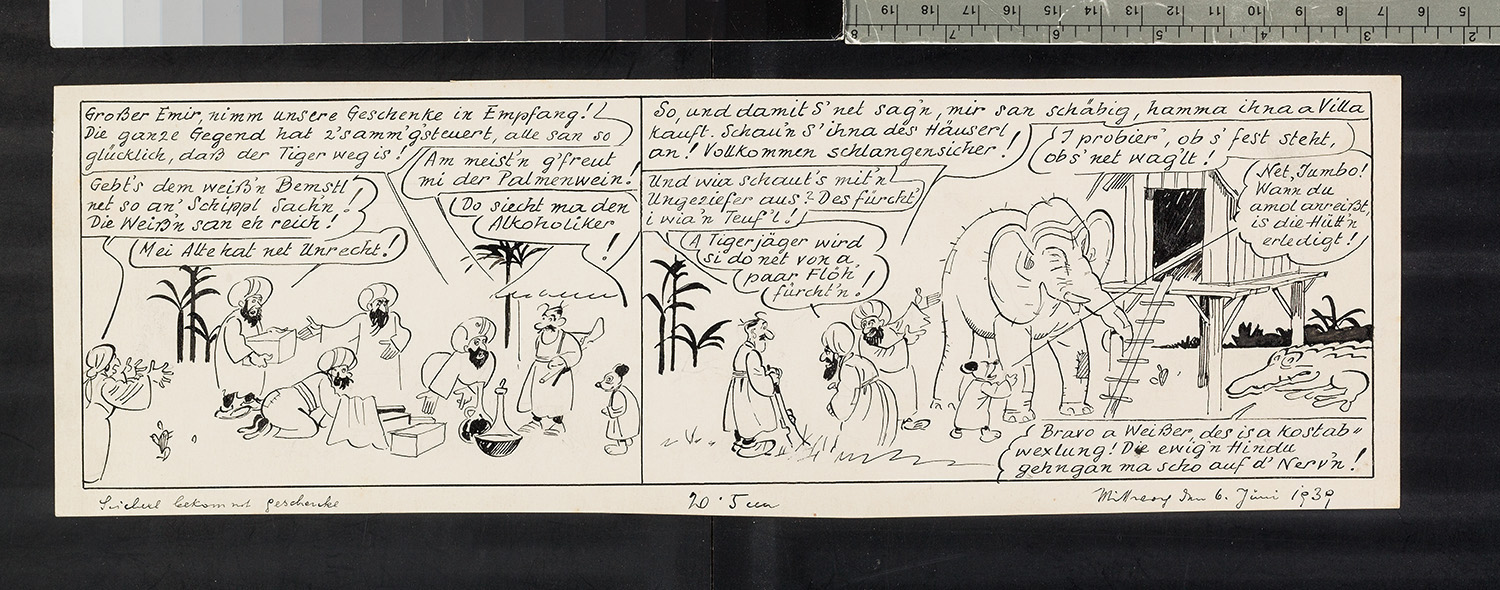 Großer Emir, nimm unsere Geschenke in Empfang!
Die ganze Gegend hat z'samm'g'steuert, alle san so
glücklich, daß der Tiger weg is!
Am meist'n g'freut
mi der Palmenwein!
Gebt's dem weiß'n Bemstl
net so an' Schippl Sach'n,!
Die Weiß'n san eh reich!
Do siecht ma den
Alkoholiker
!
Mei Alte hat net Unrecht!
So, und damit S' net sag'n, mir san schäbig, hamma ihna a Villa
kauft. Schau'n S' ihna des Häuserl
an! Vollkommen schlangensicher!
I probier', ob s' fest steht,
ob s' net wag'lt!
Net, Jumbo!
Wann du
amol anreißt,
is die Hütt'n
erledigt!
Und wia schaut's mit'n
Ungeziefer aus? Des fürcht'
i wia'n Teuf'l!
A Tigerjäger wird
si do net von a
paar Flöh'
fürcht'n!
Bravo a Weißer, des is a Kostab=
wexlung! Die ewig'n Hindu
gehngan ma scho auf d' Nerv'n!
Seicherl bekommt geschenke
20·5 cm
Mittwoch den 6. Juni 1939
19 18 17 16 15 14 13 12 11 10 9 8 7 6 5
8 7 6 5 4 3 2